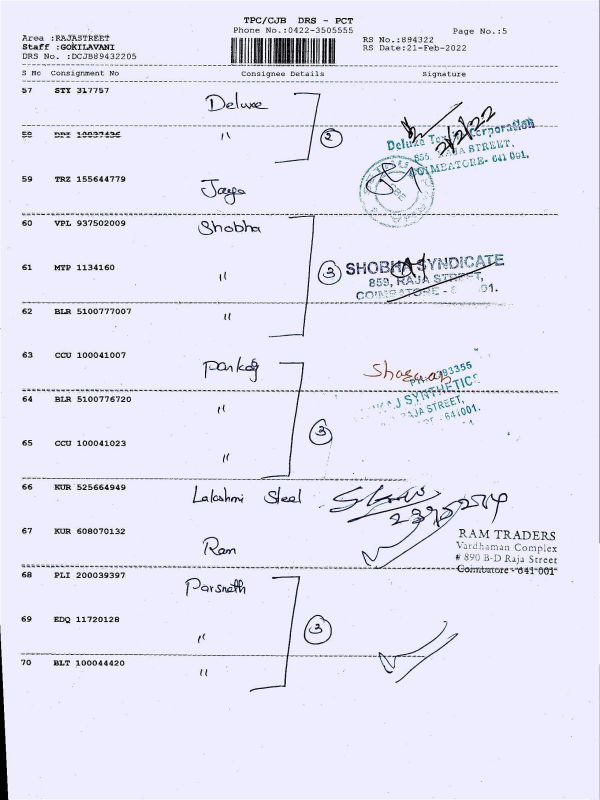 TPC/CJB DRS - PCT
Phone No.:0422-3505555
Page No.:5
Area :RAJASTREET
RS No.:894322
Staff :GOKILAVANI
RS Date:21-Feb-2022
DRS No. :DCJB89432205
S No Consignment No Consignee Details Signature
57 STY 317757 Deluxe
58 "
②
21/2/22
Deluxe Corporation
855, RAJA STREET,
COIMBATORE- 641 001.
59 TRZ 155644779 Jaya
60 VPL 937502009 Shobha
61 MTP 1134160 "
③
SHOBHA SYNDICATE
859, RAJA STREET,
COIMBATORE -
62 BLR 5100777007 "
63 CCU 100041007 Pankaj
64 BLR 5100776720 "
SYNTHETICS
RAJA STREET,
641001.
③
65 CCU 100041023 "
66 KUR 525664949 Lakshmi Steel
67 KUR 608070132 Ram
RAM TRADERS
Vardhaman Complex
# 890 B-D Raja Street
Coimbatore - 641 001
68 PLI 200039397 Parsnath
69 EDQ 11720128 "
③
70 BLT 100044420 "